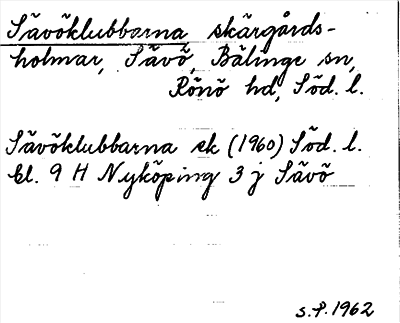 Sävöklubbarna skärgårds-
holmar, Sävö, Bälinge sn,
Rönö hd, Söd. l.
Sävöklubbarna sk (1960) Söd. l.
bl. 9 H Nyköping 3 j Sävö
S.P. 1962